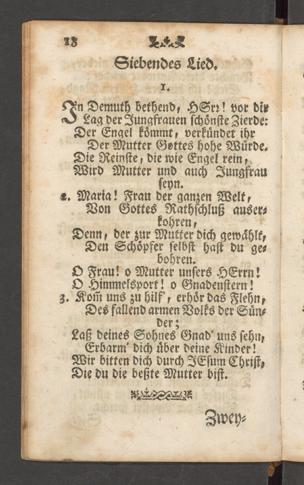 18
Siebendes Lied.
1.
In Demuth bethend, HErr! vor dir
Lag der Jungfrauen schönste Zierde:
Der Engel kömmt, verkündet ihr
Der Mutter Gottes hohe Würde.
Die Reinste, die wie Engel rein,
Wird Mutter und auch Jungfrau
seyn.
2. Maria! Frau der ganzen Welt,
Von Gottes Rathschluß auser-
kohren,
Denn, der zur Mutter dich gewählt,
Den Schöpfer selbst hast du ge-
bohren.
O Frau! o Mutter unsers HErrn!
O Himmelsport! o Gnadenstern!
3. Kom̃ uns zu hilf, erhör das Flehn,
Des fallend armen Volks der Sün-
der;
Laß deines Sohnes Gnad' uns sehn,
Erbarm' dich über deine Kinder!
Wir bitten dich durch JEsum Christ,
Die du die beßte Mutter bist.
Zwey-